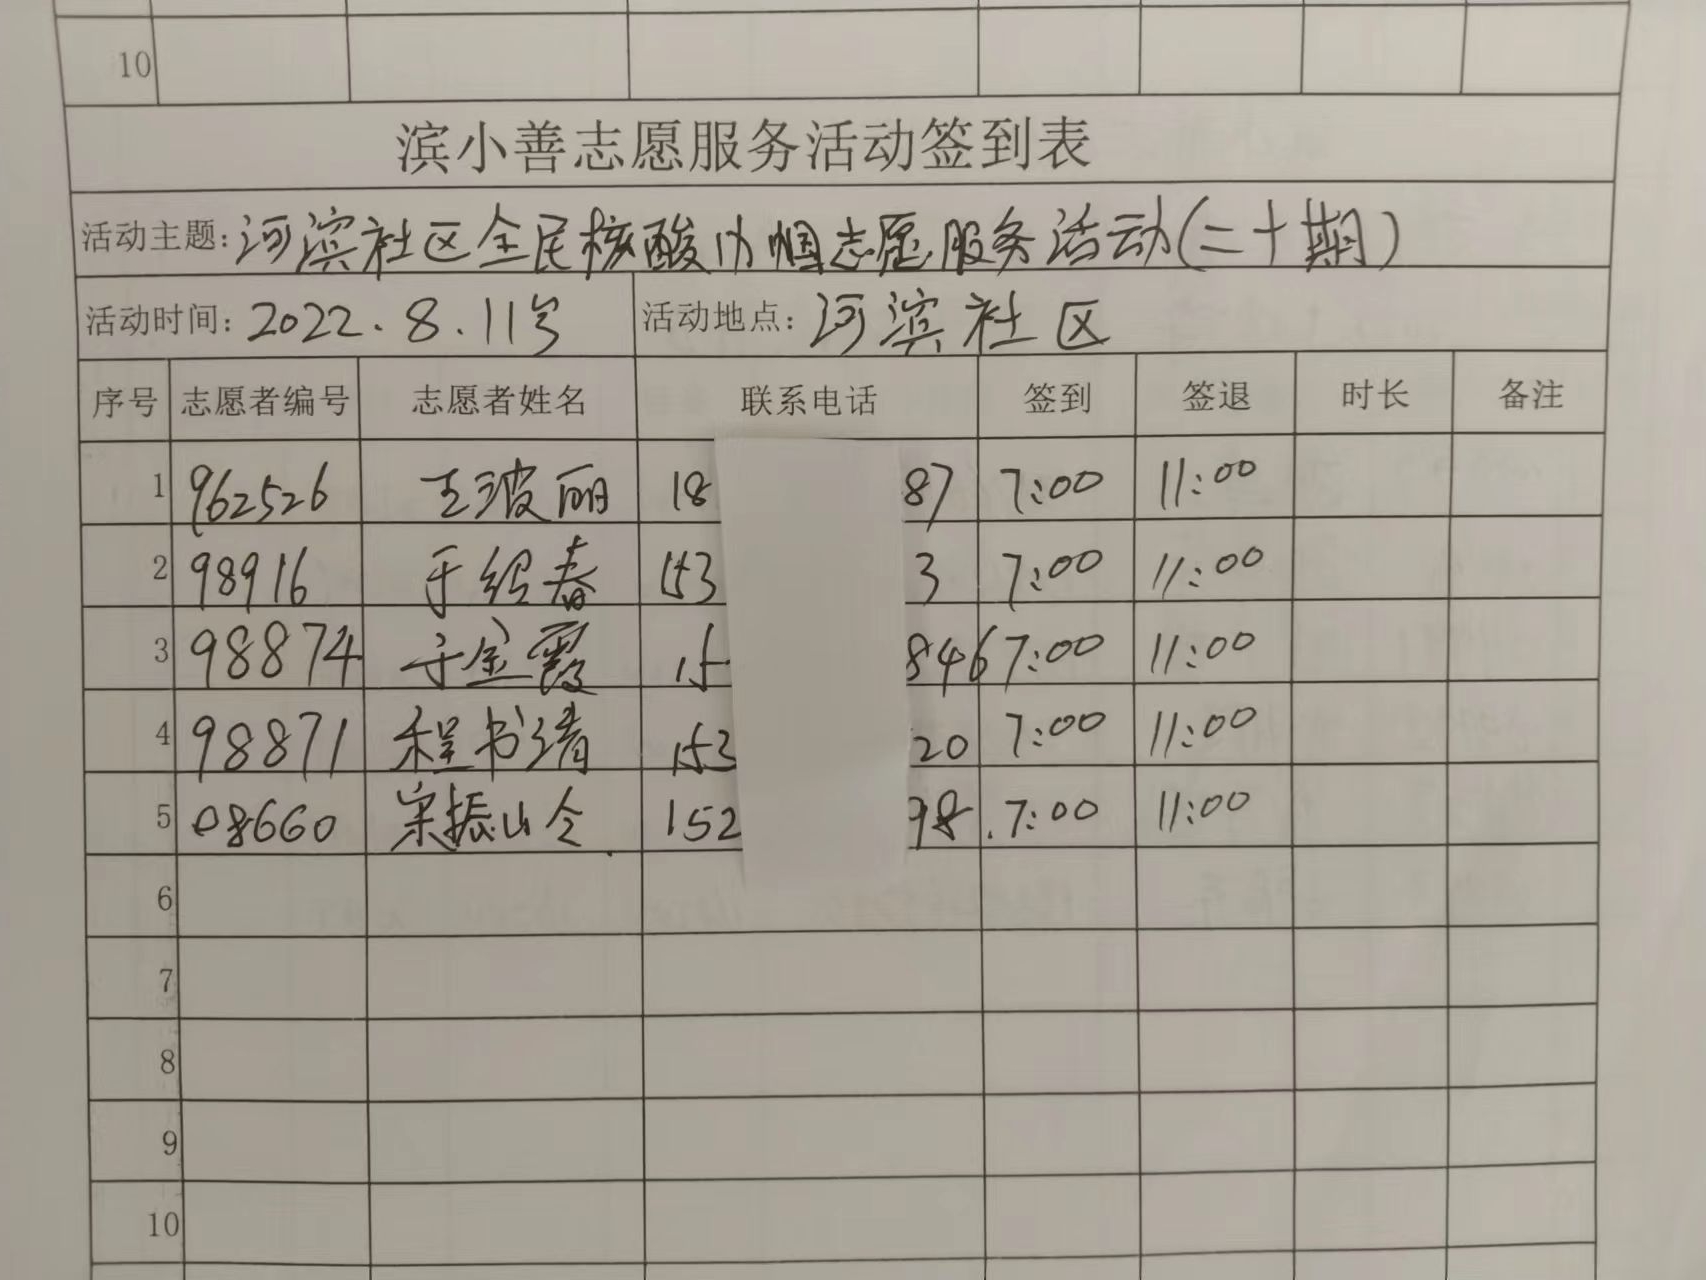 10
滨小善志愿服务活动签到表
活动主题: 河滨社区全民核酸巾帼志愿服务活动(二十期)
活动时间: 2022.8.11号 活动地点: 河滨社区
序号 志愿者编号 志愿者姓名 联系电话 签到 签退 时长 备注
1 962526 王玻丽 18 87 7:00 11:00
2 98916 于绍春 153 3 7:00 11:00
3 98874 于金霞 15 846 7:00 11:00
4 98871 程书清 153 20 7:00 11:00
5 08660 宋振山令 152 98 7:00 11:00
6
7
8
9
10